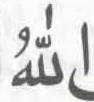 اللهُ